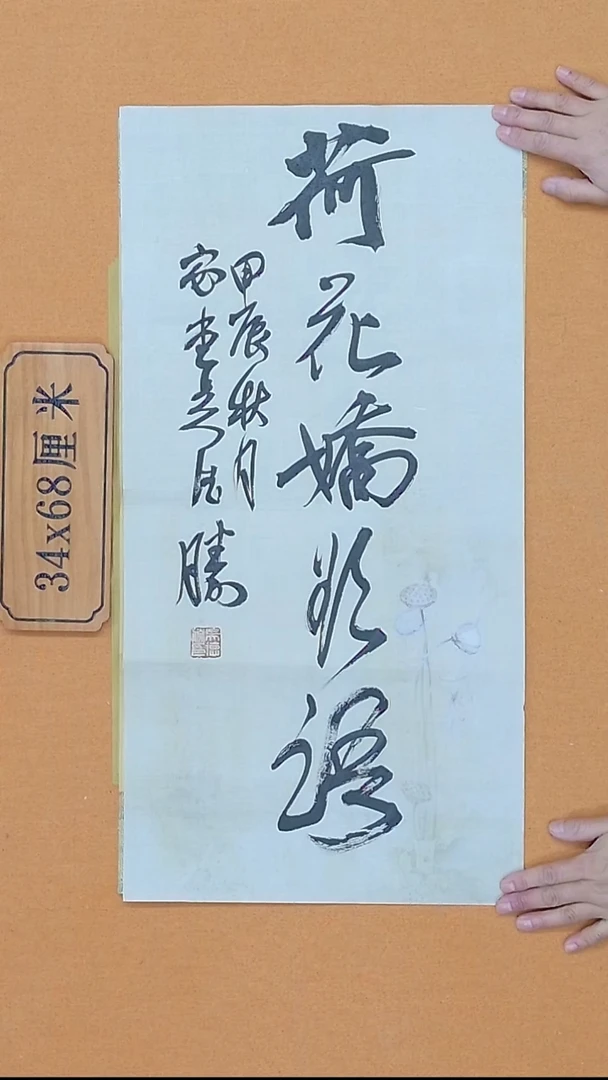 荷花嬌欲語
甲辰秋月
勝
34x68厘米